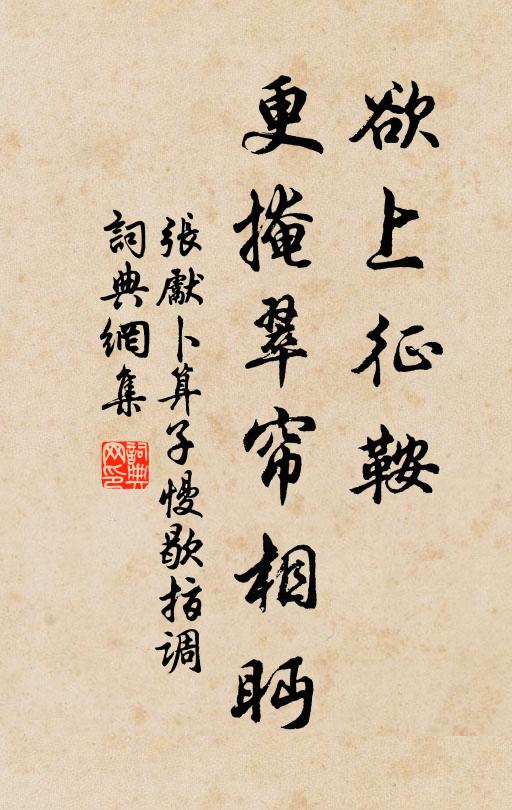 欲上征鞍
更掩翠帘相眄
張獻卜算子慢歇指调
詞典網集
詞典网印